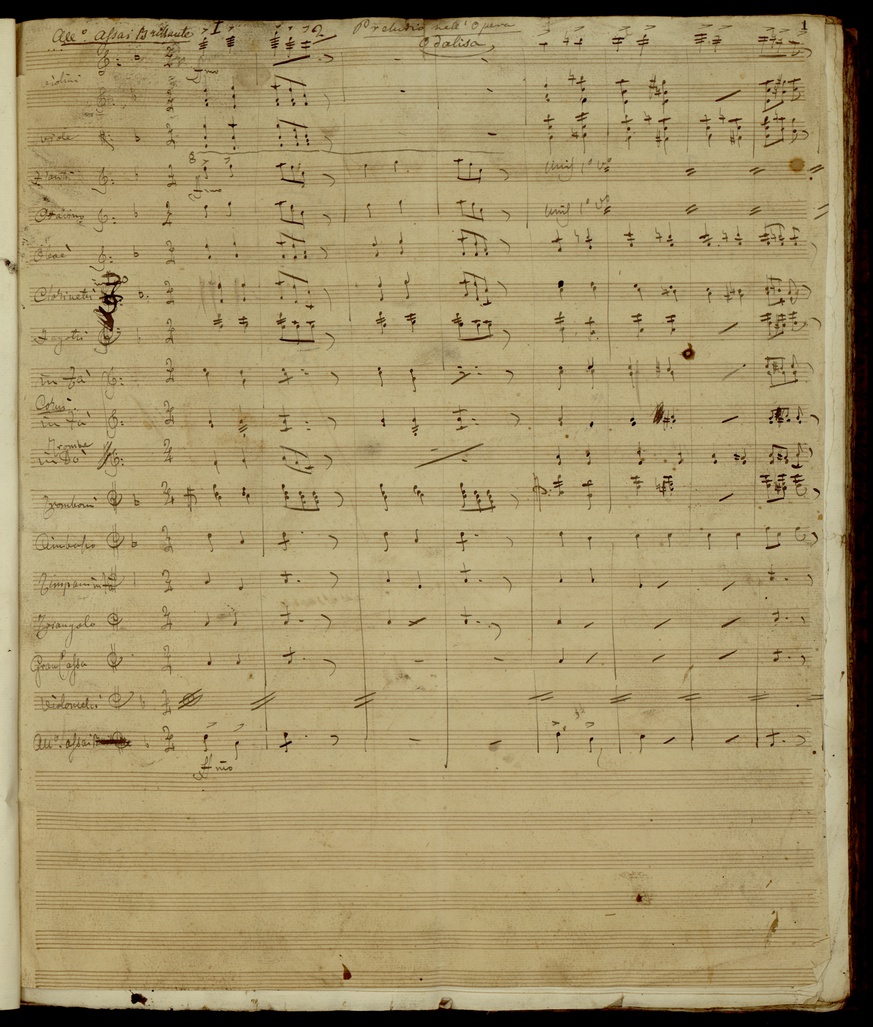 All.o assai Brillante I 2 Preludio nell' Opera 1
Odalisa
Violini
Viole
Flauti
Unis 1o Vo
Ottavino
Unis 1o Vo
Oboè
Clarinetti
Fagotti
in Fà
Corni
in Fà
Trombe
in Do
Tromboni
Cimbasso
Timpani in fà
Triangolo
Gran Cassa
Violoncelli
All.o assai
ff mo